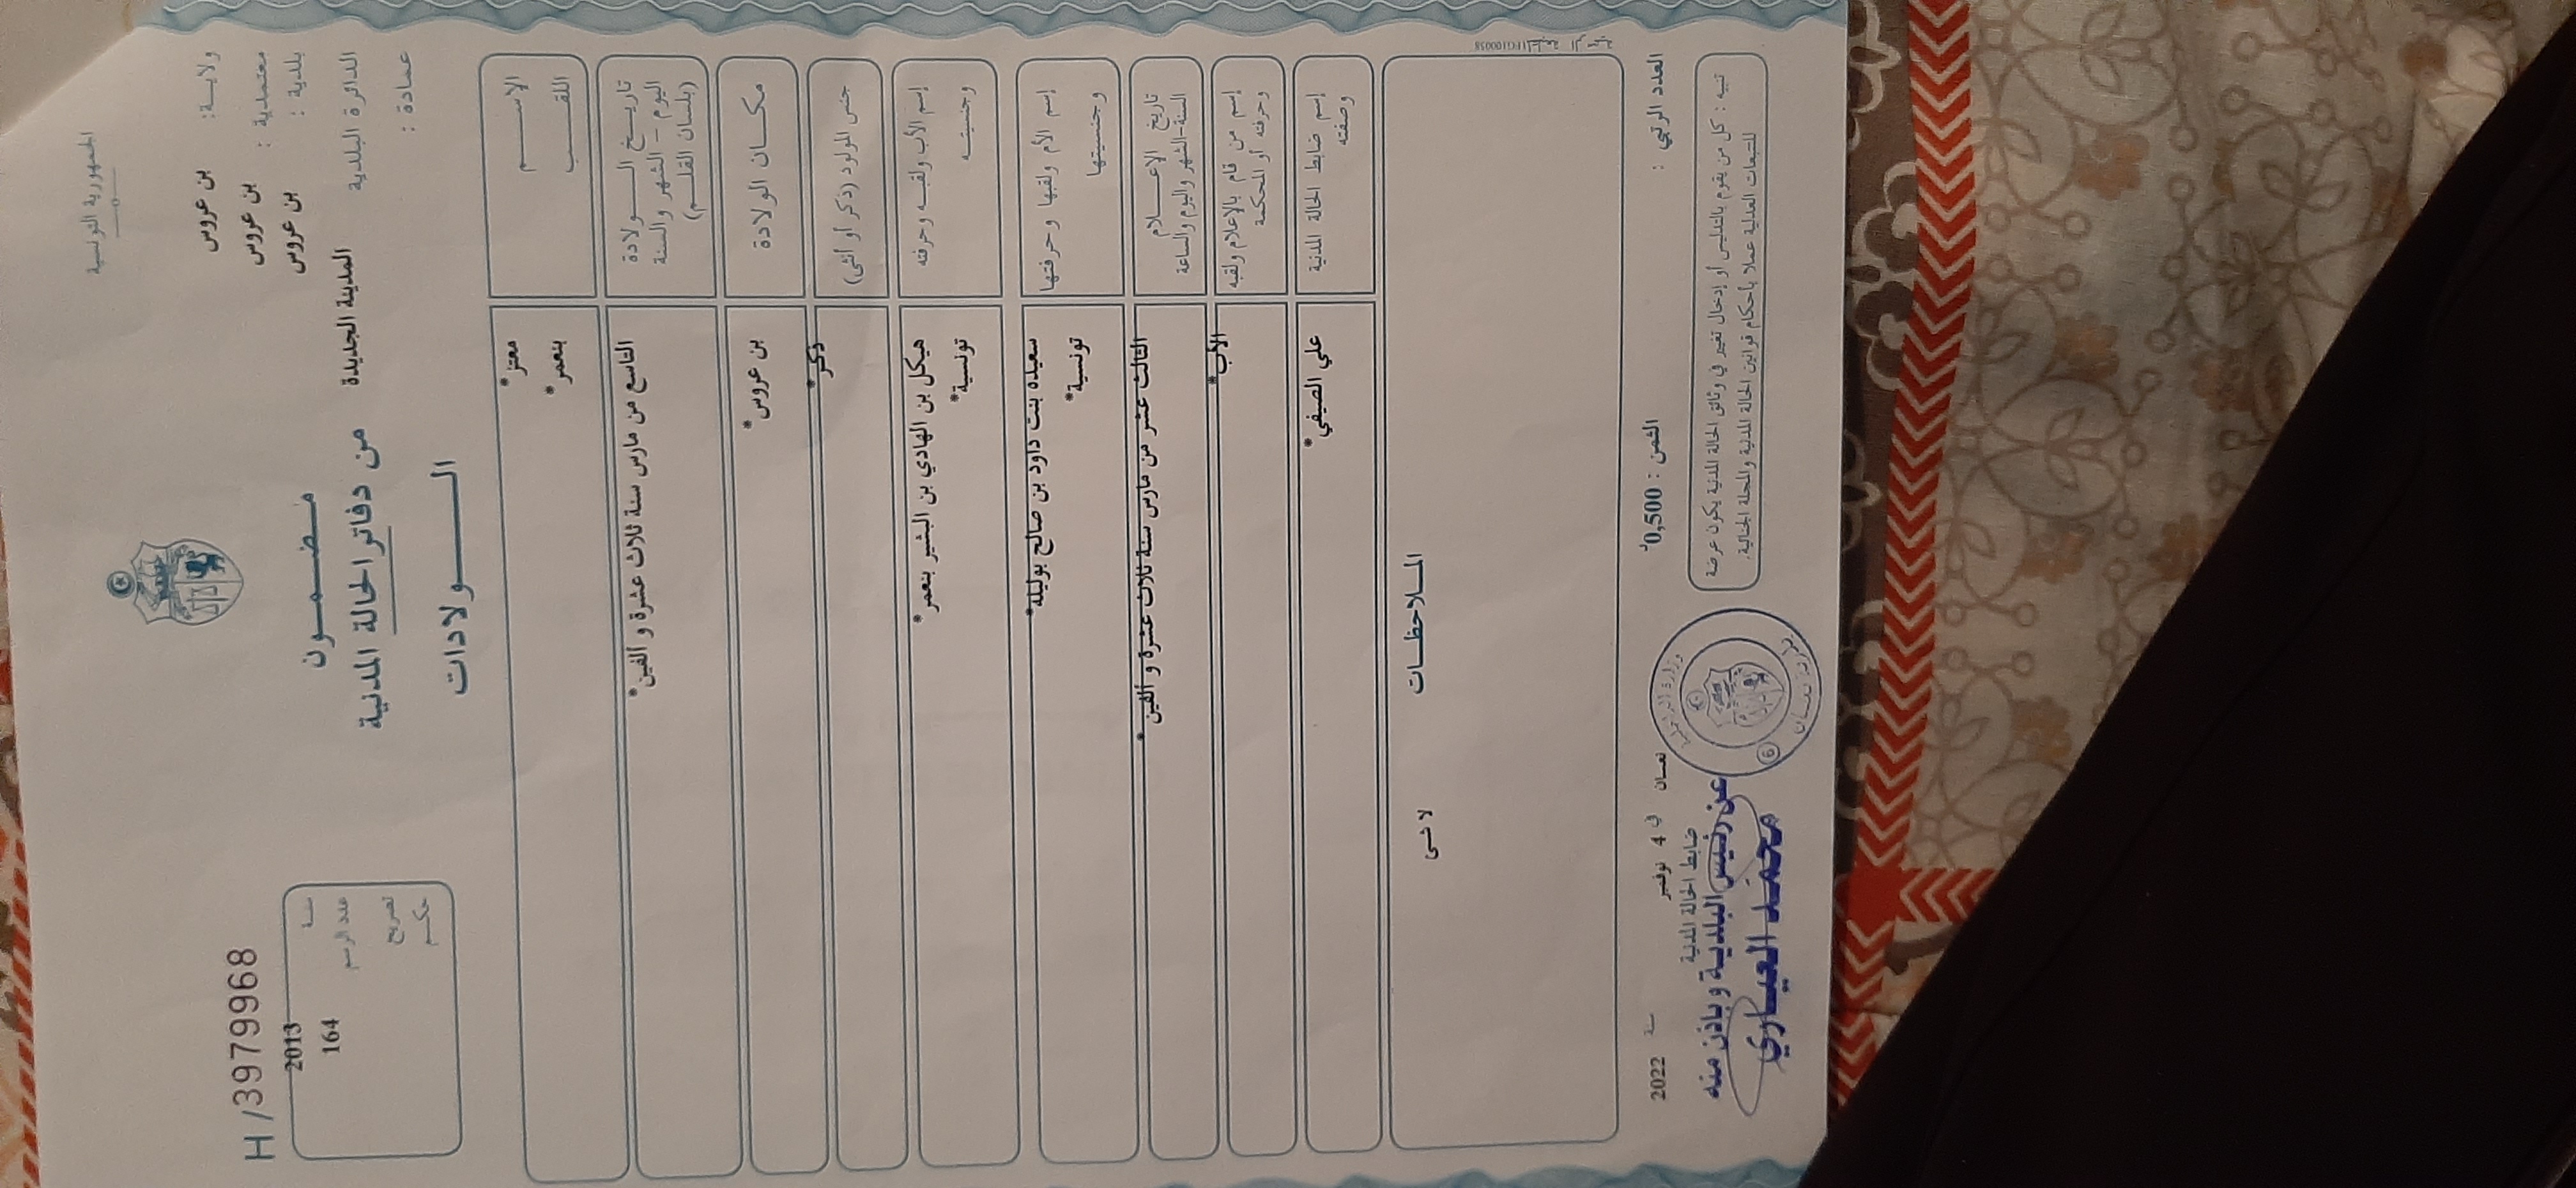 الجمهورية التونسية
ولايـــة: بن عروس
معتمدية : بن عروس
بلدية : بن عروس
الدائرة البلدية المدينة الجديدة
عمادة :
مـضـمـــون
من دفاتر الحالة المدنية
الــــولادات
H /3979968
سنـة 2013
عدد الرسم 164
تصريح
حكـم
الاســـم معتز*
اللقـــب بنعمر*
تاريـــخ الــــولادة
اليوم – الشهر والسنة
(بلسان القلـــم)
التاسع من مارس سنة ثلاث عشرة و الفين*
مكـــان الولادة بن عروس*
جنس المولود (ذكر أو أنثى) ذكر*
إسم الأب ولقبـــه وحرفته هيكل بن الهادي بن البشير بنعمر*
وجنسيتـــه تونسية*
إسم الأم ولقبها وحرفتها سعيده بنت داود بن صالح بوليله*
وجنسيتها تونسية*
تاريخ الإعـــلام
السنة-الشهر واليوم والساعة
الثالث عشر من مارس سنة ثلاث عشرة و ألفين*
إسم من قام بالإعلام ولقبه
وحرفته أو المحكمة
الأب*
إسم ضابط الحالة المدنية
وصفته
علي الصيفي*
المـــلاحظـــات
لا شى
العدد الرتبي :
الثمن : 0,500د
نعسان في 4 نوفمبر سنة 2022
ضابط الحالة المدنية
تنبيه : كل من يقوم بالتدليس أو إدخال تغيير في وثائق الحالة المدنية يكون عرضة
للتتبعات العدلية عملا بأحكام قوانين الحالة المدنية والمجلة الجنائية.
عن رئيس البلدية وباذن منه
محمد العيـاري
بلدية نعسان
6